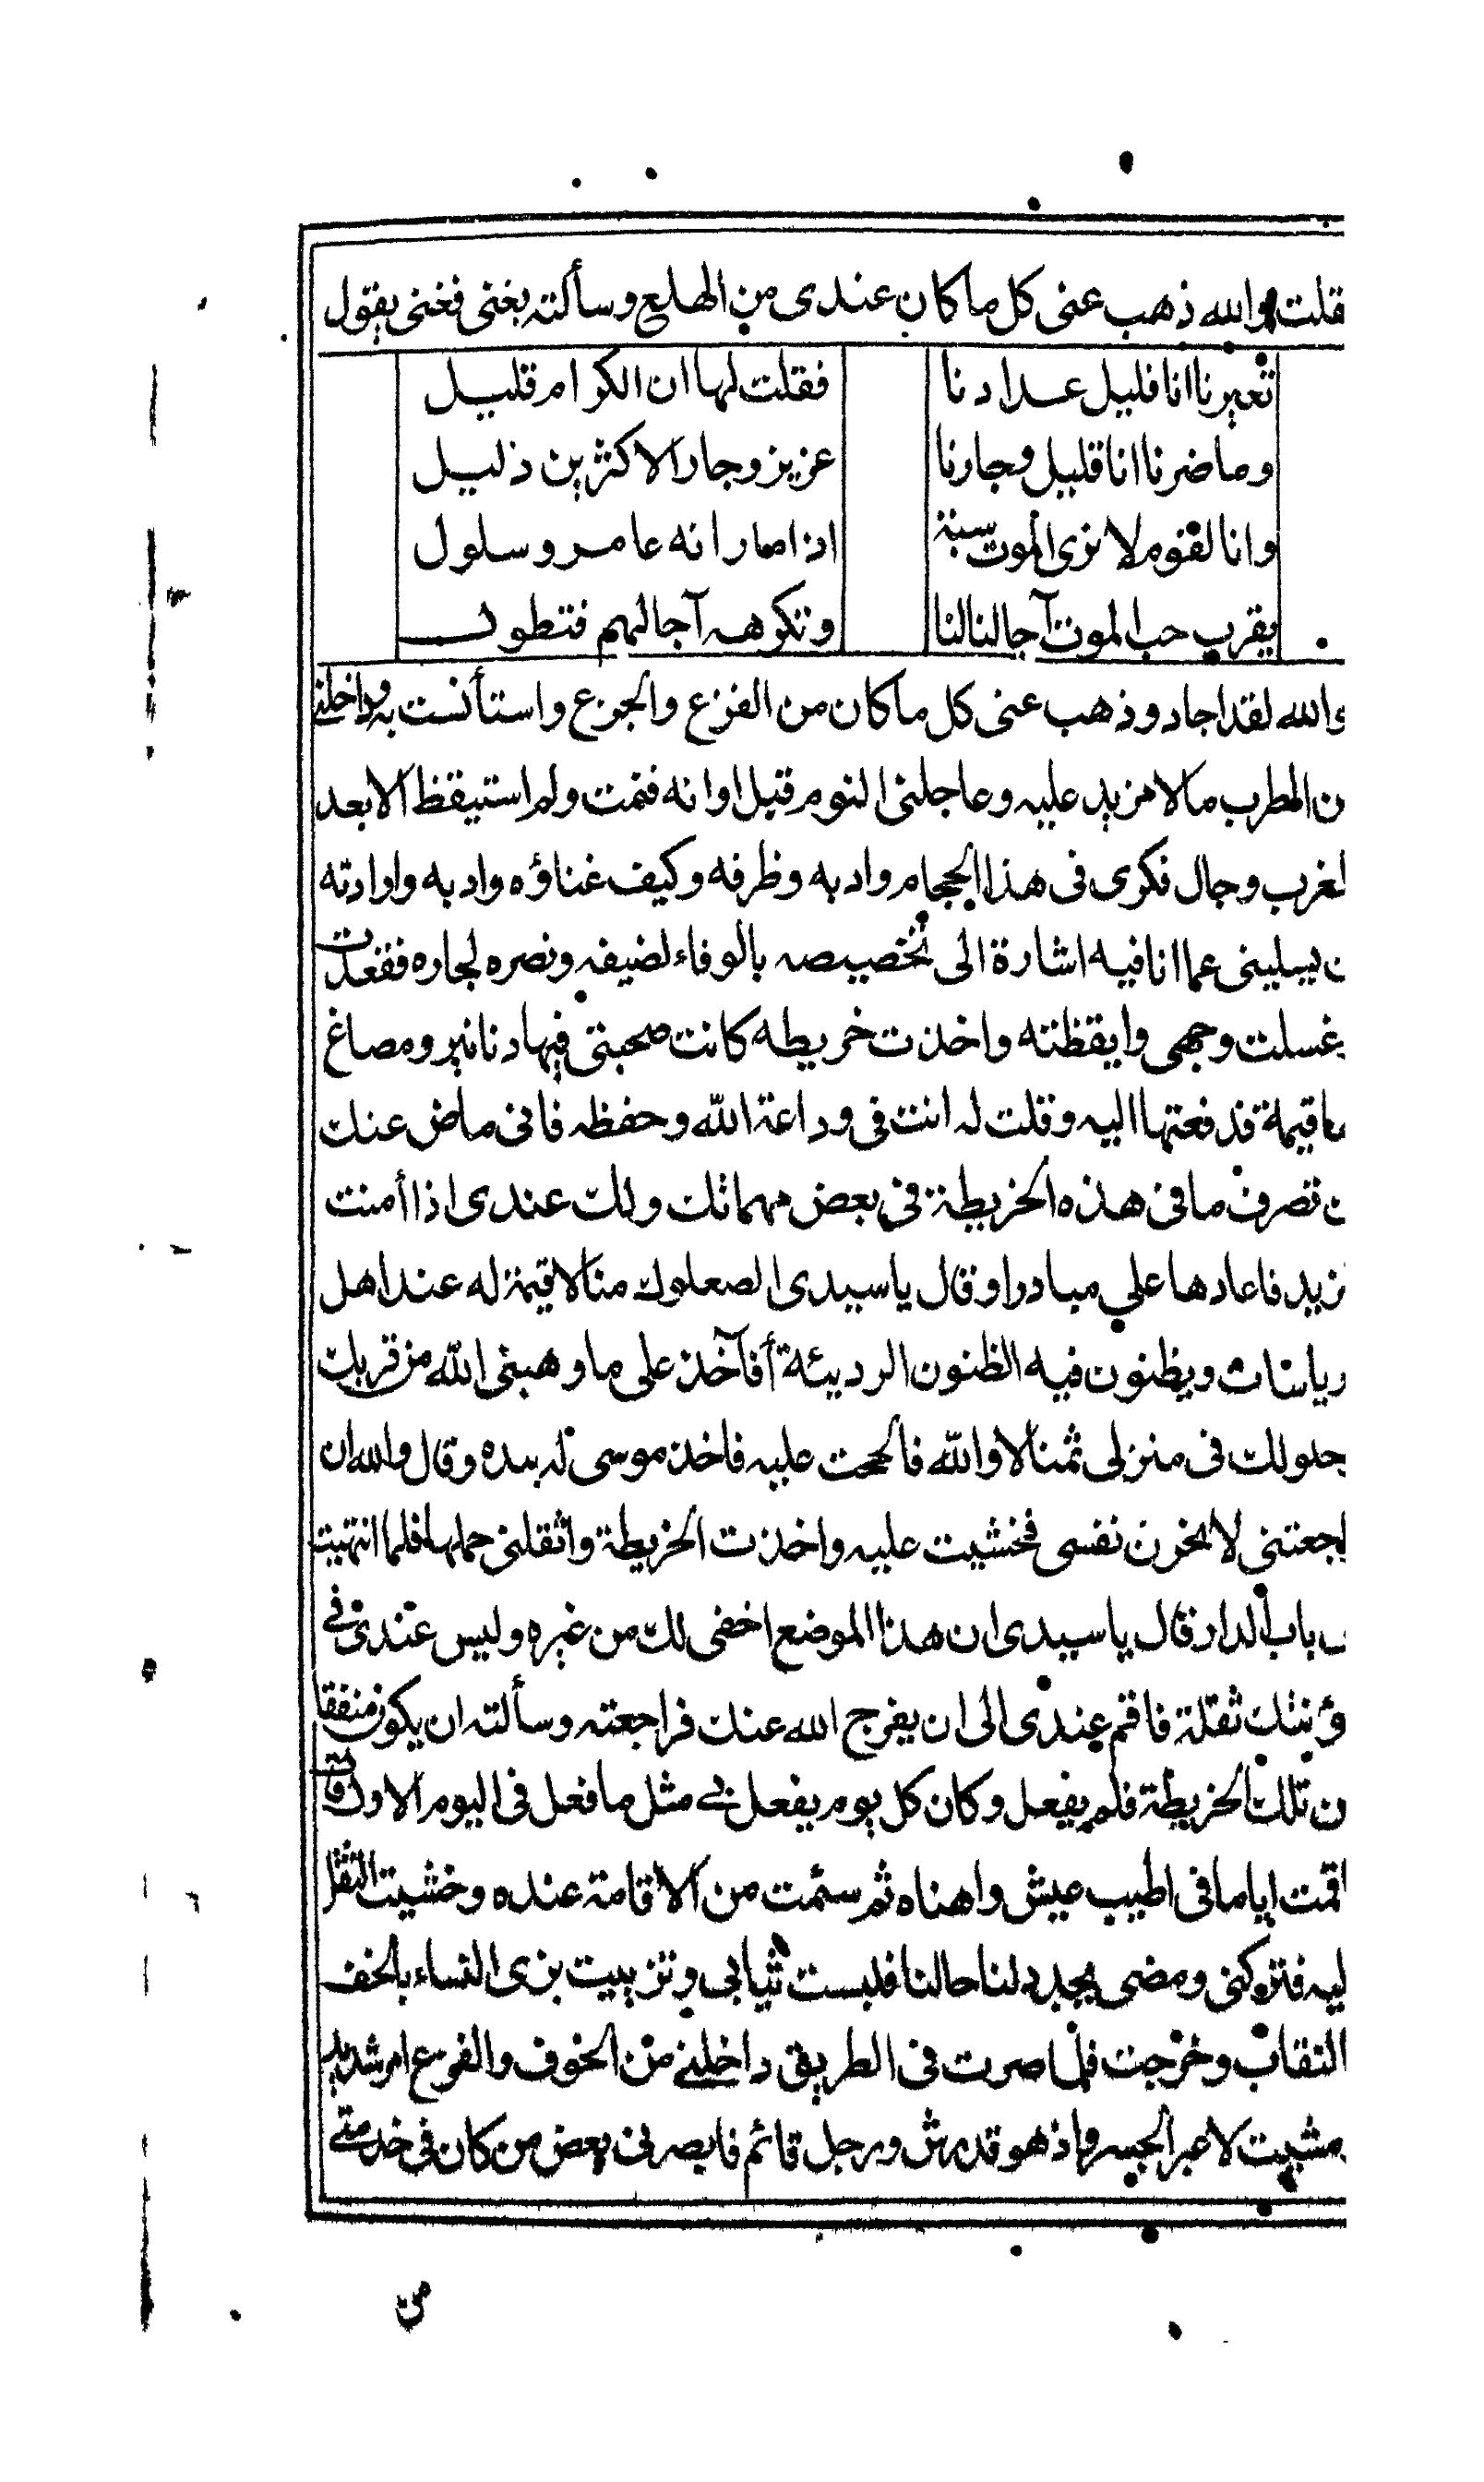 قلت والله ذهب عنى كل ما كان عندى من الهلع وسألته يغنى فغنى يقول
تعيرنا انا قليل عدادنا فقلت لها ان الكرام قليل
وما ضرنا انا قليل وجارنا عزيز وجار الاكثرين ذليل
وانا لقوم لا نرى الموت سبة اذا ما رانه عامر وسلول
يقرب حب الموت آجالنا لنا وتكرهه آجالهم فتطول
والله لقد اجاد وذهب عنى كل ما كان من الفزع والجزع واستأنست به وداخلنى
ن الطرب ما لا مزيد عليه وعاجلنى النوم قبل اوانه فنمت ولم استيقظ الا بعد
لغرب وجال فكرى فى هذا الحجام وادبه وظرفه وكيف غناؤه وادبه وارادته
ن يسلينى عما انا فيه اشارة الى تخصيصه بالوفاء لضيفه ونصره لجاره فقعدت
غسلت وجهى وايقظته واخذت خريطه كانت صحبتى فيها دنانير ومصاغ
ما قيمة قد فعتها اليه وقلت له انت فى وداعة الله وحفظه فانى ماض عنك
ن تصرف ما فى هذه الخريطة فى بعض مهماتك ولك عندى اذا أمنت
زيد فاعادها على مبادرا وقال ياسيدى الصعلوك منا لا قيمة له عند اهل
رياسات ويظنون فيه الظنون الرديئة أفآخذ على ما وهبنى الله من قربك
حلولك فى منزلى ثمنا لا والله فالححت عليه فاخذ موسى له بيده وقال والله ان
اجعتنى لانحرن نفسى فخشيت عليه واخذت الخريطة واثقلنى حملها فلما انتهيت
باب الدار قال ياسيدى ان هذا الموضع اخفى لك من غيره وليس عندى فى
ؤنتك ثقلة فاقم عندى الى ان يفرج الله عنك فراجعته وسألته ان يكون منفقا
ن تلك الخريطة فلم يفعل وكان كل يوم يفعل بى مثل ما فعل فى اليوم الاول
اقمت اياما فى اطيب عيش واهناه ثم سئمت من الاقامة عنده وخشيت الثقل
ليه فتركنى ومضى يجدد لنا حالنا فلبست ثيابى وتزييت بزى النساء بالخف
النقاب وخرجت فلما صرت فى الطريق داخلنى من الخوف والفزع امر شديد
مشيت لاعبر الجسر واذ هو قد رش ورجل قائم فابصرنى بعض من كان فى خدمتى
من